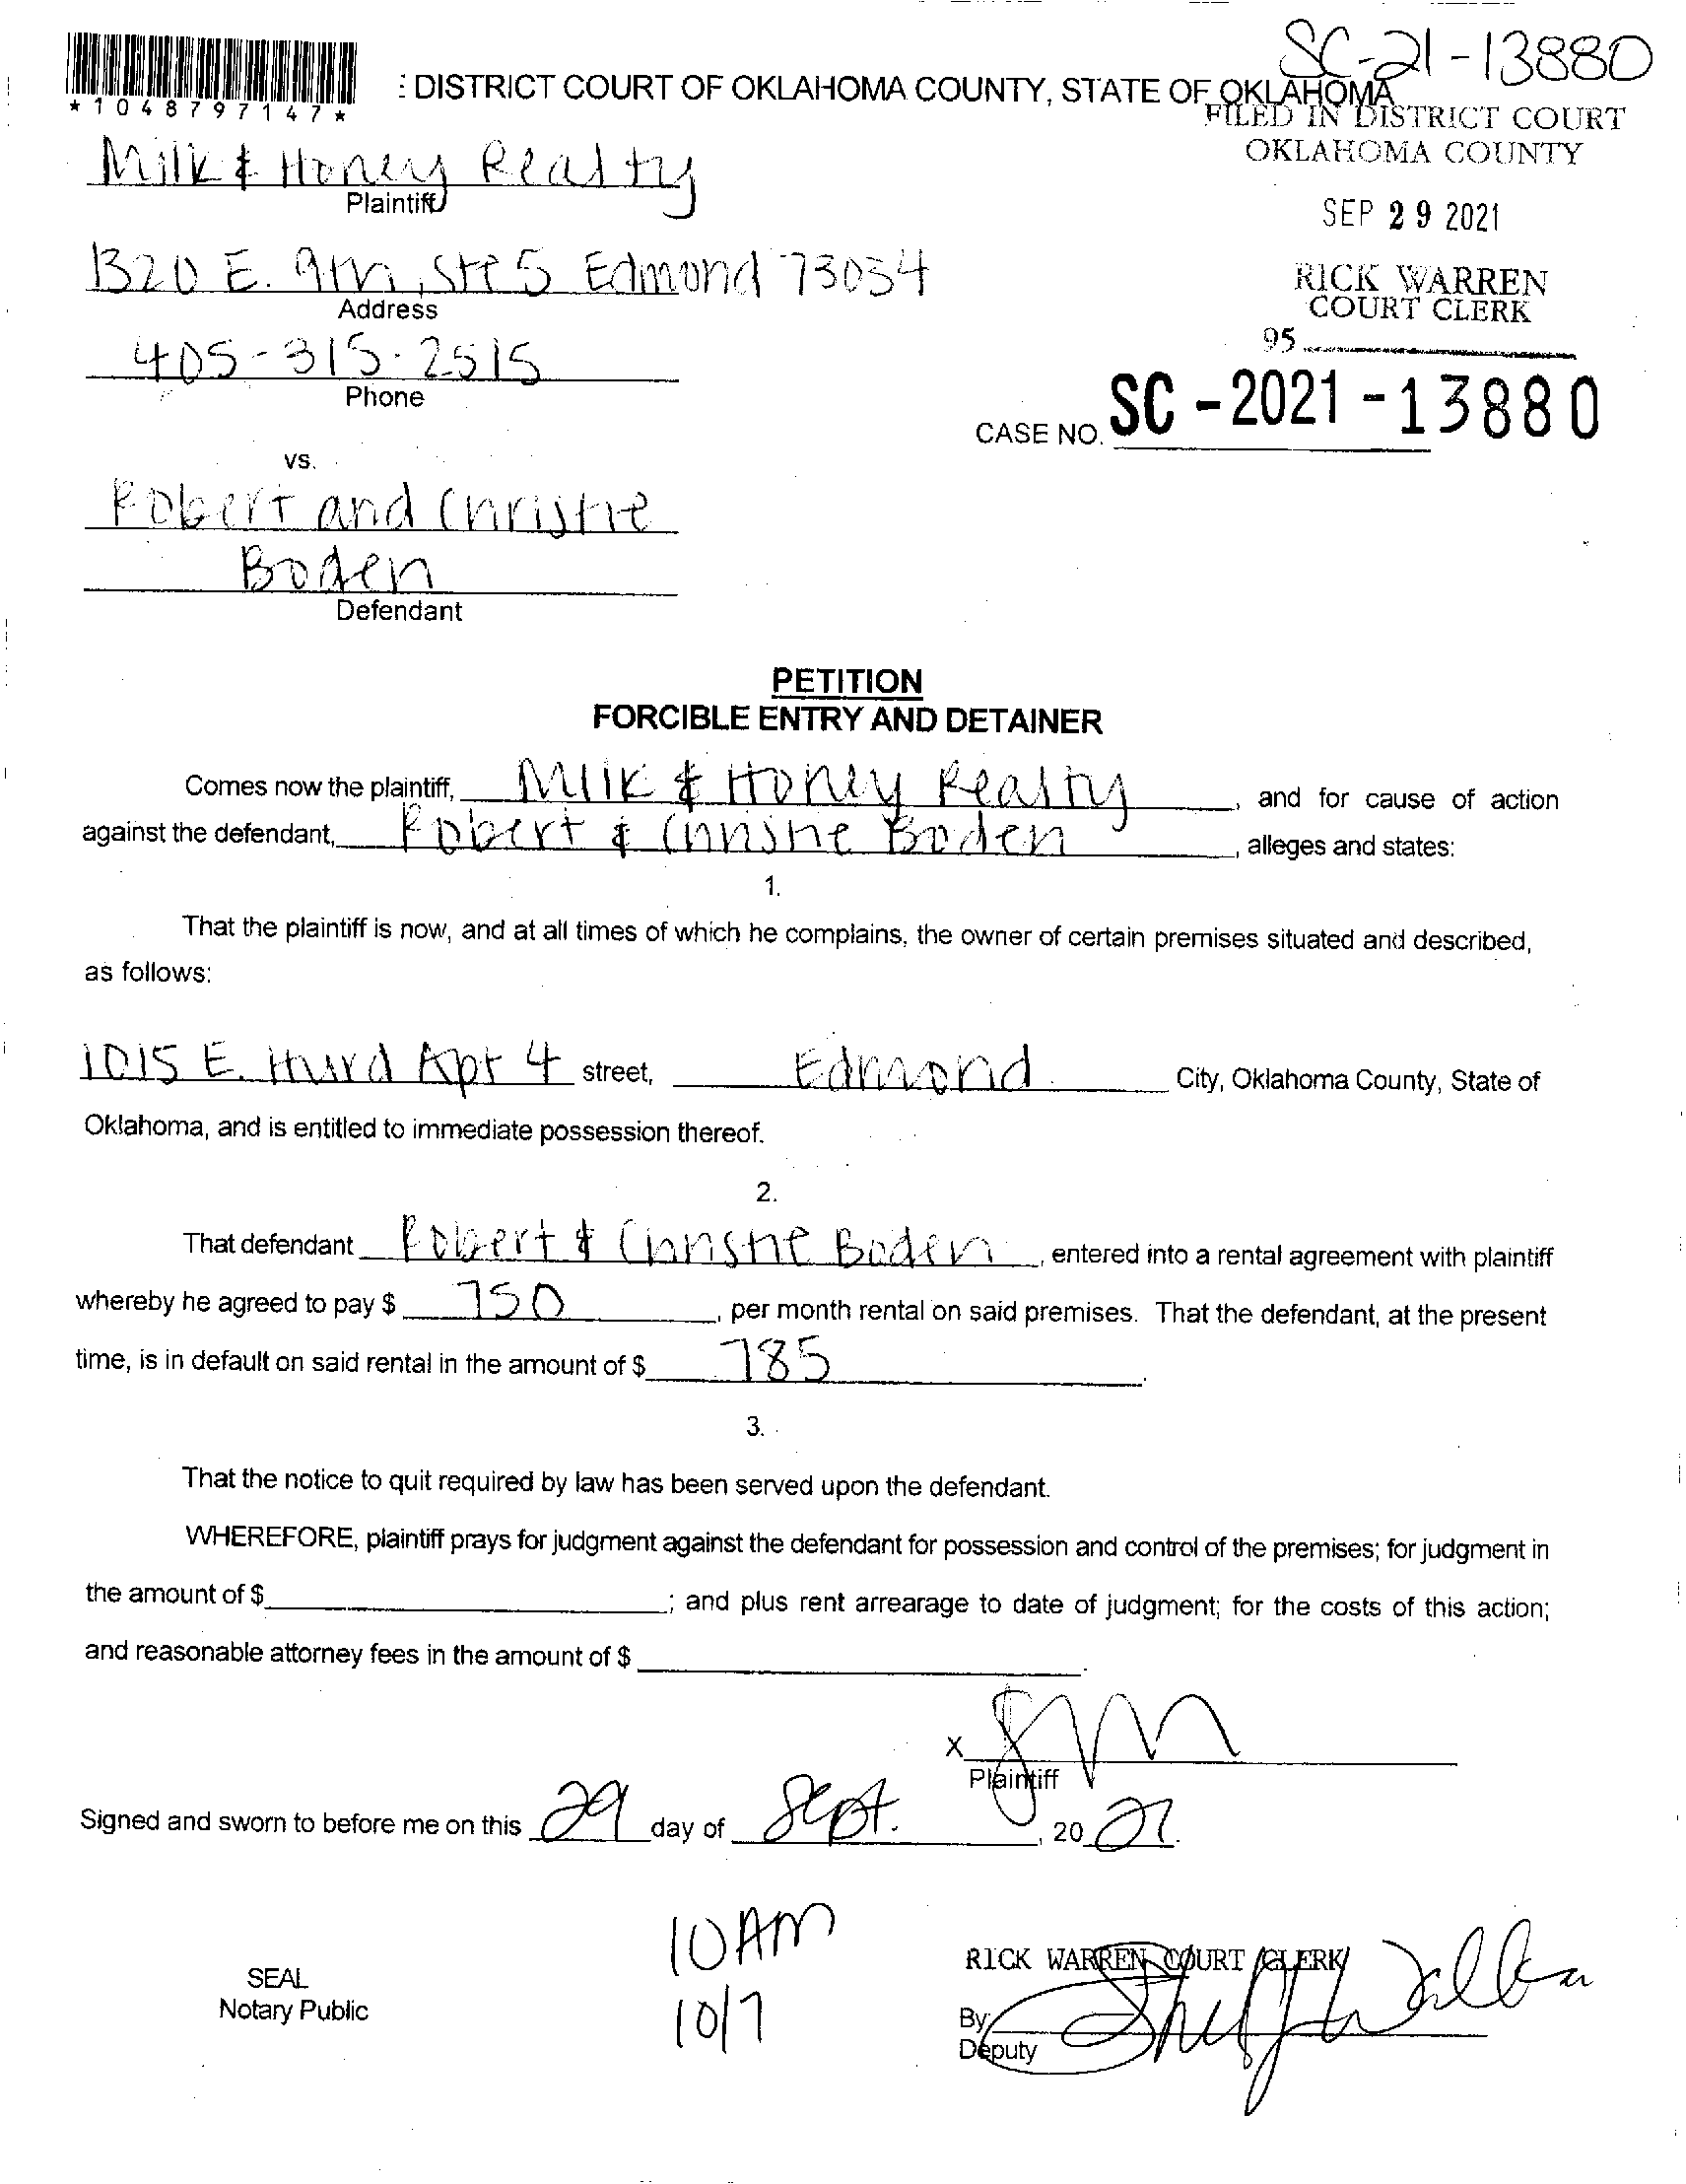 SC-21-13880
*1048797147*
: DISTRICT COURT OF OKLAHOMA COUNTY, STATE OF OKLAHOMA
FILED IN DISTRICT COURT
OKLAHOMA COUNTY
Milk & Honey Realty
Plaintiff
SEP 29 2021
1320 E. 9th, Ste 5 Edmond 73034
Address
RICK WARREN
COURT CLERK
95
405-315-2515
Phone
CASE NO. SC-2021-13880
vs.
Robert and Christie
Boden
Defendant
PETITION
FORCIBLE ENTRY AND DETAINER
Comes now the plaintiff, Milk & Honey Realty, and for cause of action
against the defendant, Robert & Christie Boden, alleges and states:
1.
That the plaintiff is now, and at all times of which he complains, the owner of certain premises situated and described,
as follows:
1015 E. Hurd Apt 4 street, Edmond City, Oklahoma County, State of
Oklahoma, and is entitled to immediate possession thereof.
2.
That defendant Robert & Christie Boden, entered into a rental agreement with plaintiff
whereby he agreed to pay $ 750, per month rental on said premises. That the defendant, at the present
time, is in default on said rental in the amount of $ 785.
3.
That the notice to quit required by law has been served upon the defendant.
WHEREFORE, plaintiff prays for judgment against the defendant for possession and control of the premises; for judgment in
the amount of $ ; and plus rent arrearage to date of judgment; for the costs of this action;
and reasonable attorney fees in the amount of $ .
X
Plaintiff
Signed and sworn to before me on this 29 day of Sept., 20 21.
10 AM
10/7
SEAL
Notary Public
RICK WARREN COURT CLERK
By:
Deputy